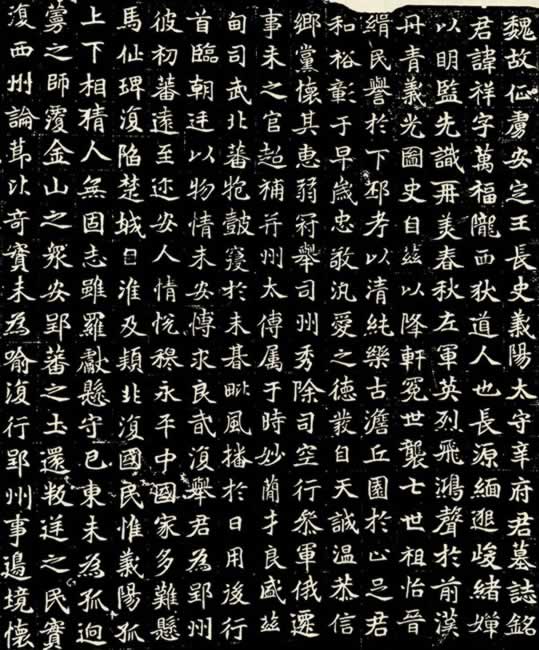 魏故征虜安定王長史義陽太守辛府君墓誌銘
君諱祥字萬福隴西狄道人也長源緬邈峻緒嬋
以明監先識再美春秋左軍英烈飛鴻聲於前漢
丹青義光圖史自茲以降軒冕世襲七世祖怡晉
緝民譽於下邳考以清純樂古澹丘園於山足君
和裕彰于早歲忠敬汎愛之德發自天誠溫恭信
鄉黨懷其惠弱冠舉司州秀除司空行參軍俄遷
事未之官超補并州太傅属于時妙蕳才良盛茲
甸司武北蕃抱鼓寝於未朞毗風播於日用後行
首臨朝廷以物情未安博求良貳復舉君為郢州
彼初蕃遠至迩安人情悅穆永平中國家多難懸
馬仙琕復陷楚城自淮及頪北復國民惟義陽孤
上下相猜人無固志雖羅獻懸守巴東未為孤逈
蒍之師覆金山之衆安郢蕃之土還叛逆之民實
復西州論茆比奇實未為喻復行郢州事邊境懷